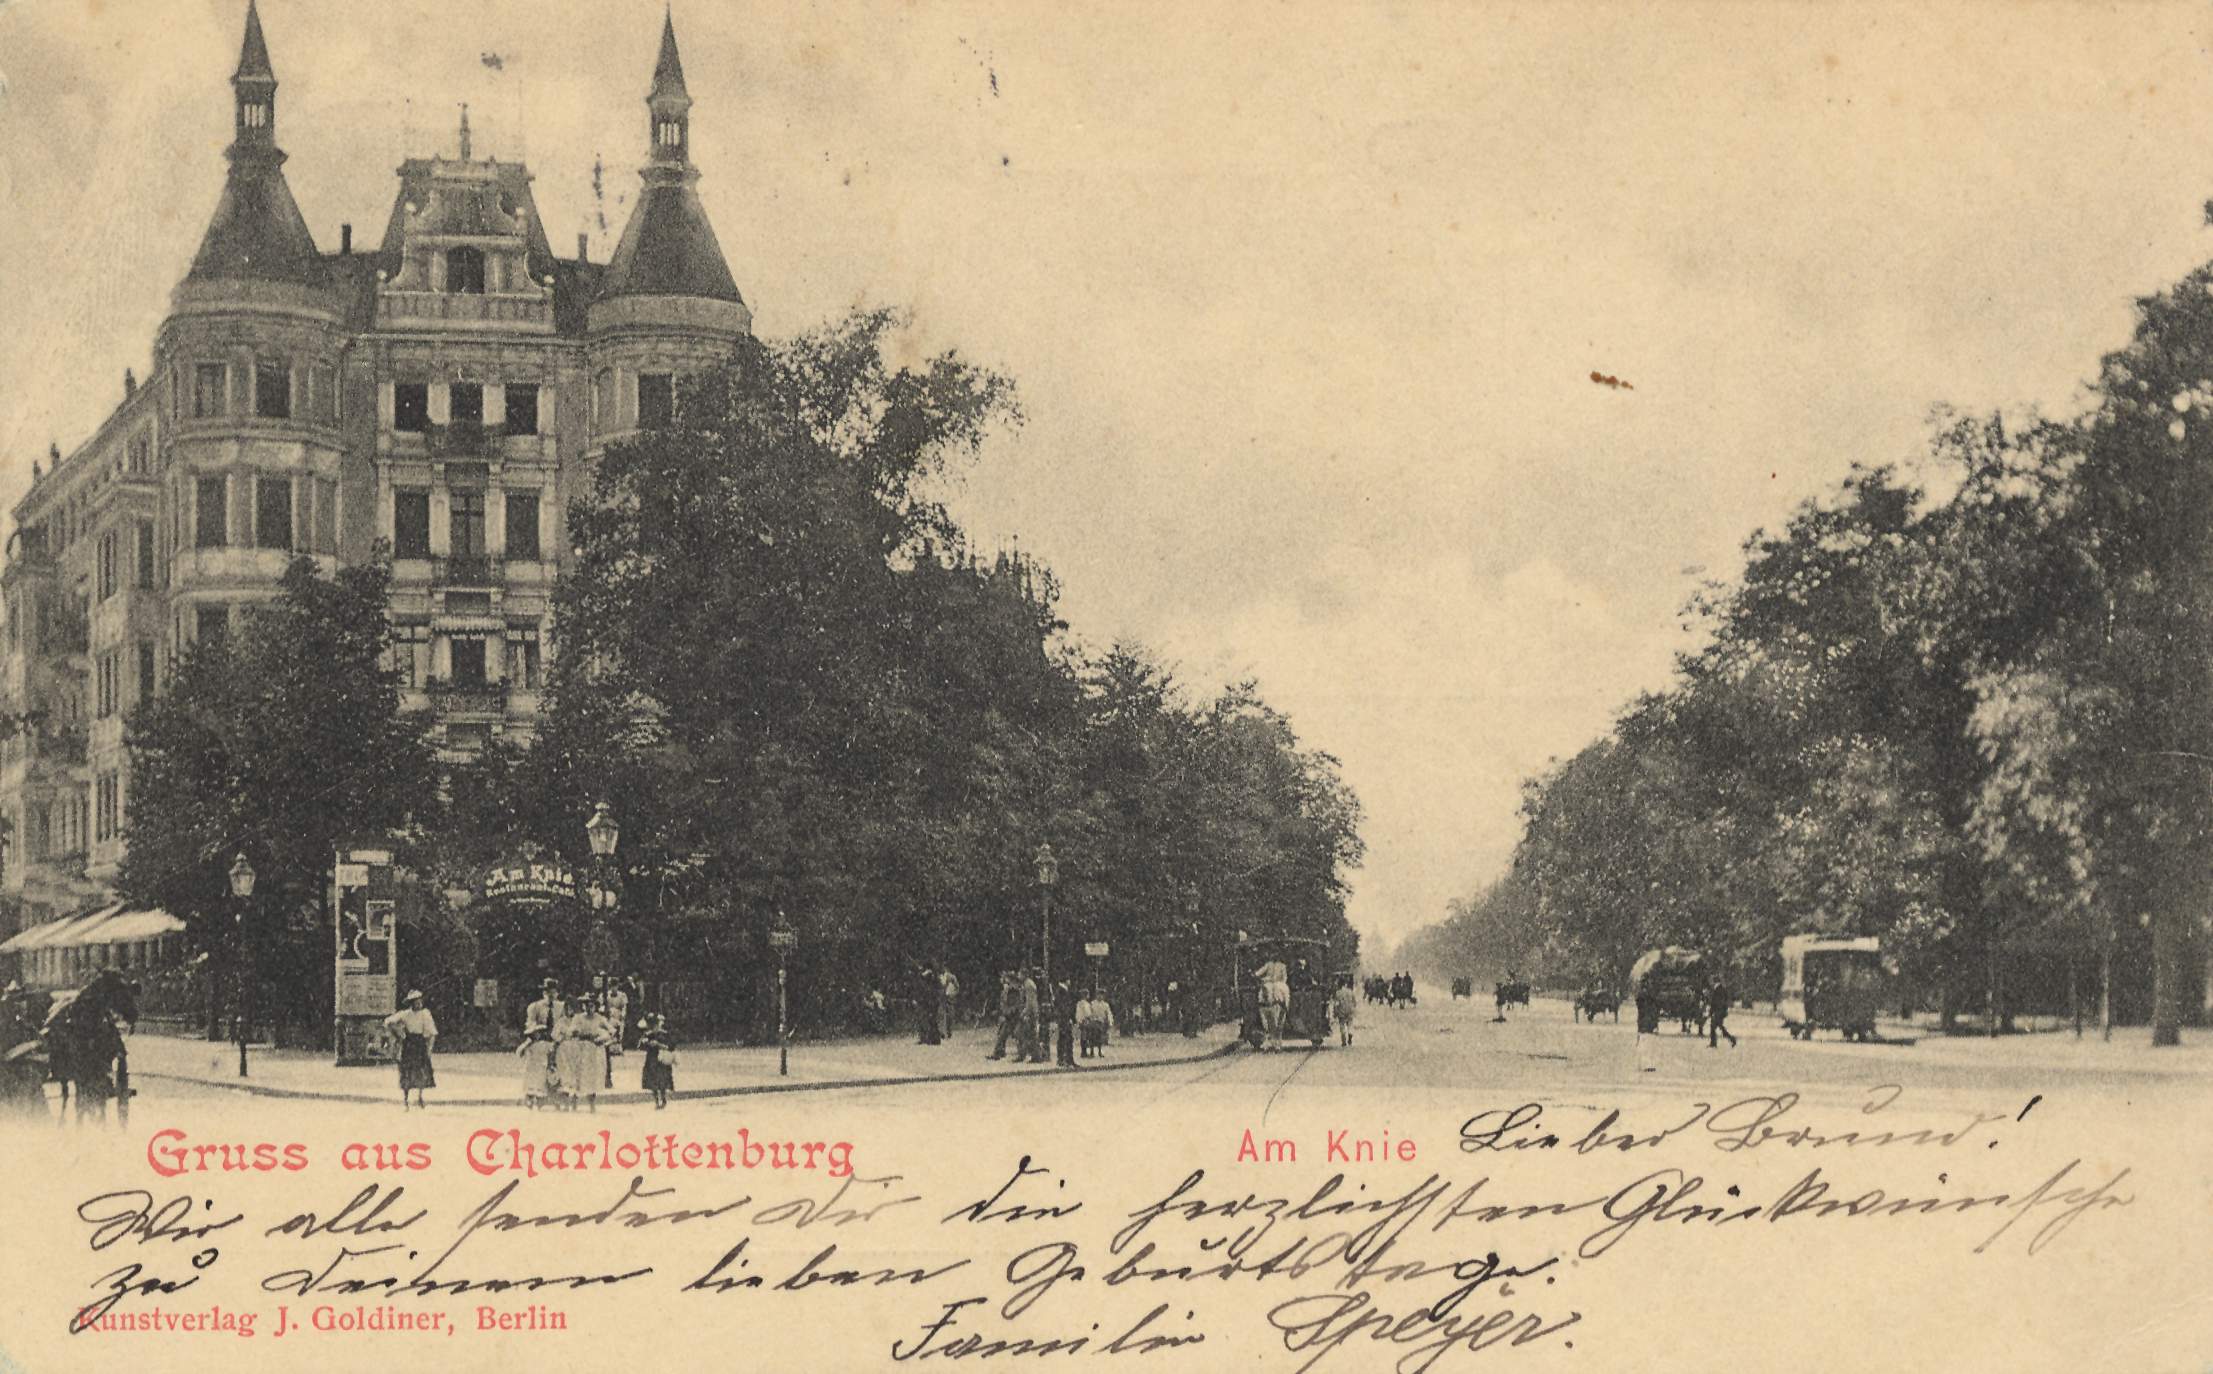 Am Knie
Restaurant & Café
Gruss aus Charlottenburg
Am Knie
Lieber Bruno!
Wir alle senden Dir die herzlichsten Glückwünsche
zu Deinem lieben Geburtstage.
Familie Speyer.
Kunstverlag J. Goldiner, Berlin